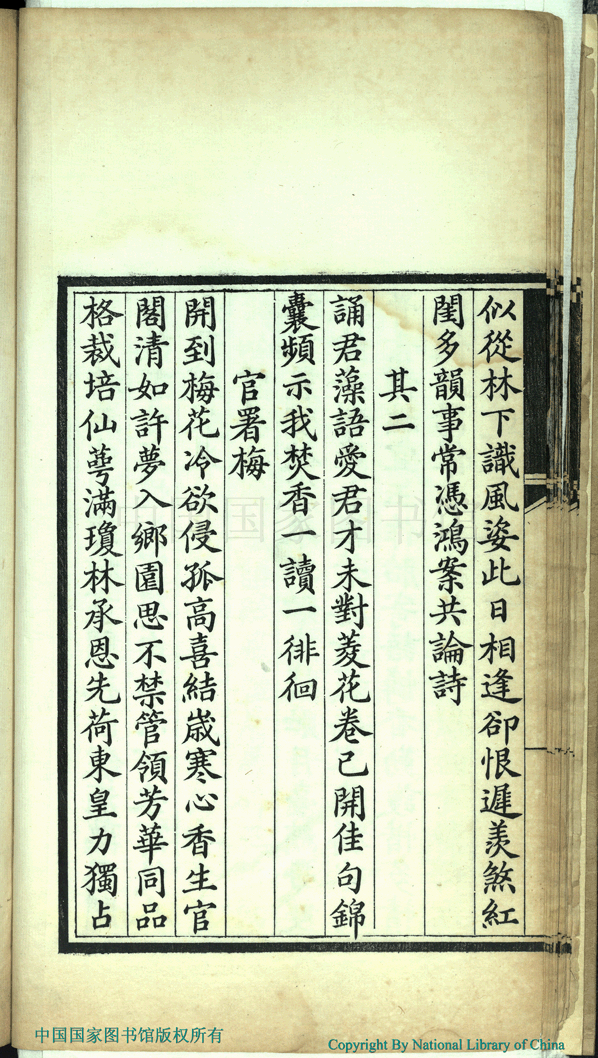 似從林下識風姿此日相逢卻恨遲羨煞紅
閨多韻事常憑鴻案共論詩
其二
誦君藻語愛君才未對菱花卷已開佳句錦
囊頻示我焚香一讀一徘徊
官署梅
開到梅花冷欲侵孤高喜結歲寒心香生官
閣清如許夢入鄉園思不禁管領芳華同品
格栽培仙萼滿瓊林承恩先荷東皇力獨占
中国国家图书馆
中国国家图书馆版权所有
Copyright By National Library of China